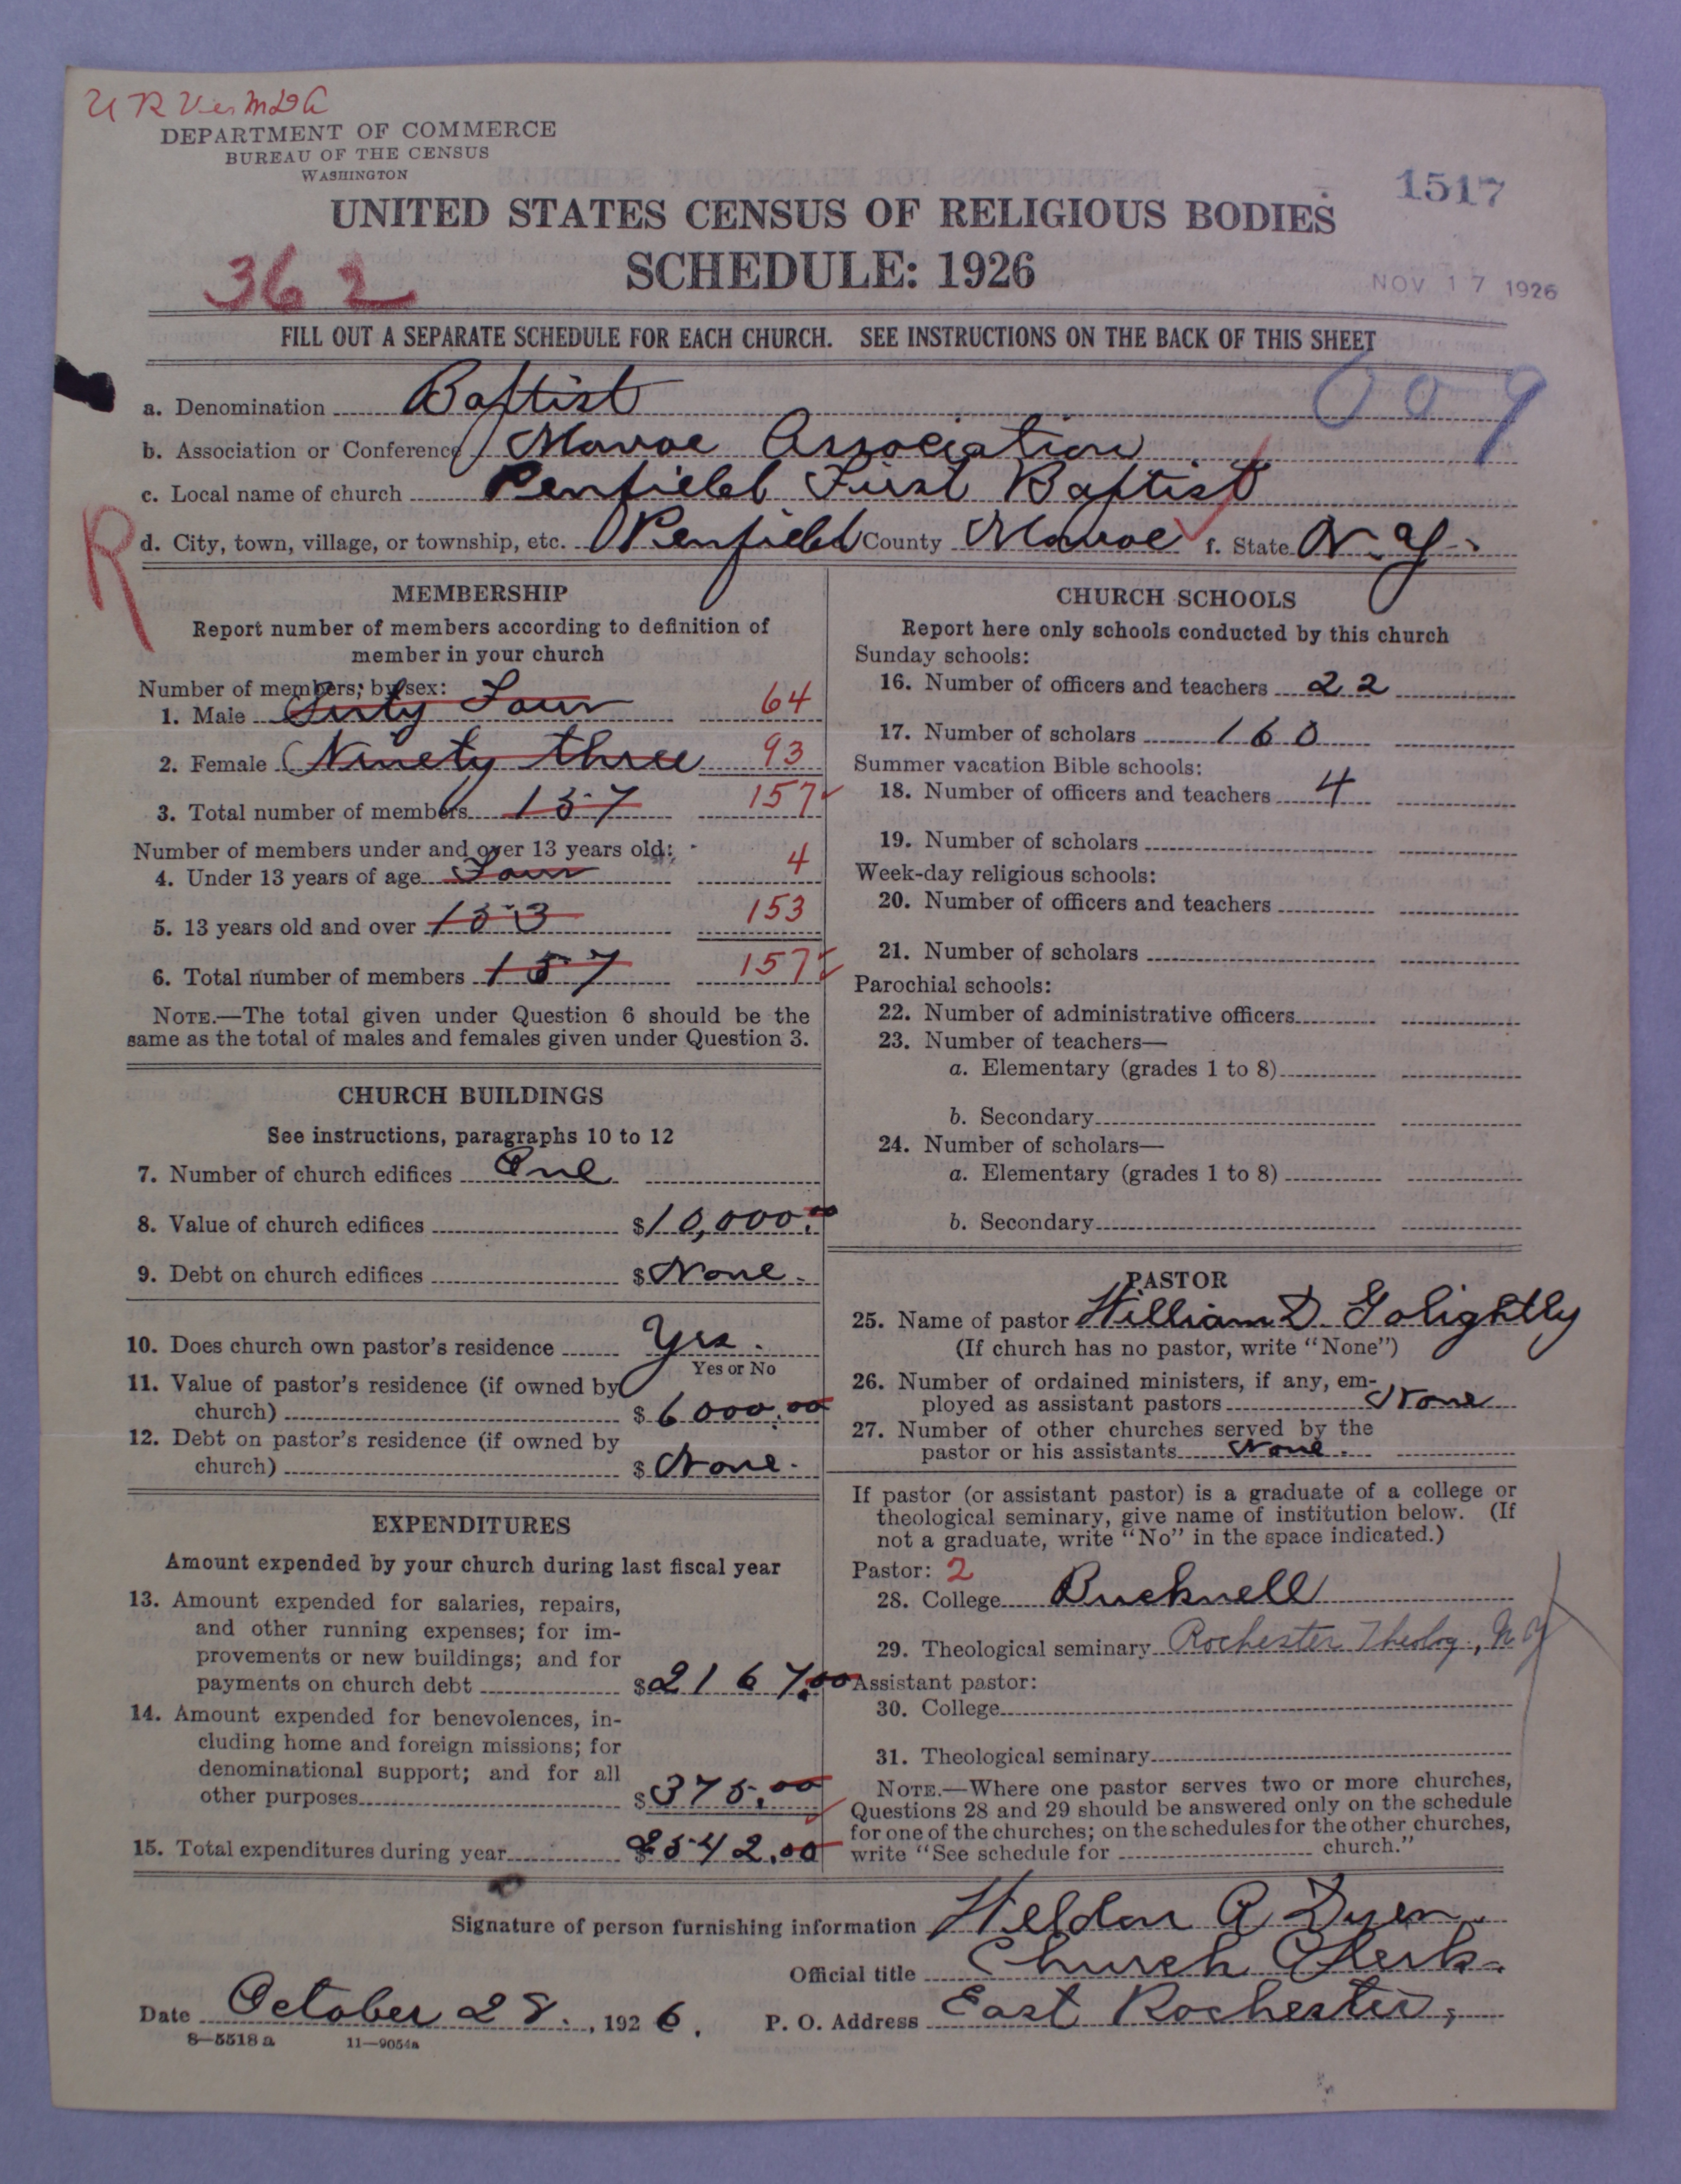 DEPARTMENT OF COMMERCE
BUREAU OF THE CENSUS
WASHINGTON
1517
UNITED STATES CENSUS OF RELIGIOUS BODIES
362
SCHEDULE: 1926
NOV 17 1926
FILL OUT A SEPARATE SCHEDULE FOR EACH CHURCH. SEE INSTRUCTIONS ON THE BACK OF THIS SHEET
009
a. Denomination Baptist
b. Association or Conference Monroe Association
c. Local name of church Penfield First Baptist
R
d. City, town, village, or township, etc. Penfield County Monroe f. State N.Y.
MEMBERSHIP
Report number of members according to definition of
member in your church
Number of members, by sex:
1. Male Sixty Four 64
2. Female Ninety three 93
3. Total number of members 157 157
Number of members under and over 13 years old:
4. Under 13 years of age Four 4
5. 13 years old and over 153 153
6. Total number of members 157 157
NOTE.—The total given under Question 6 should be the
same as the total of males and females given under Question 3.
CHURCH BUILDINGS
See instructions, paragraphs 10 to 12
7. Number of church edifices One
8. Value of church edifices $10,000.00
9. Debt on church edifices $None.
10. Does church own pastor's residence Yes.
Yes or No
11. Value of pastor's residence (if owned by
church) $6000.00
12. Debt on pastor's residence (if owned by
church) $None.
EXPENDITURES
Amount expended by your church during last fiscal year
13. Amount expended for salaries, repairs,
and other running expenses; for im-
provements or new buildings; and for
payments on church debt $2167.00
14. Amount expended for benevolences, in-
cluding home and foreign missions; for
denominational support; and for all
other purposes $375.00
15. Total expenditures during year $2542.00
CHURCH SCHOOLS
Report here only schools conducted by this church
Sunday schools:
16. Number of officers and teachers 22
17. Number of scholars 160
Summer vacation Bible schools:
18. Number of officers and teachers 4
19. Number of scholars
Week-day religious schools:
20. Number of officers and teachers
21. Number of scholars
Parochial schools:
22. Number of administrative officers
23. Number of teachers—
a. Elementary (grades 1 to 8)
b. Secondary
24. Number of scholars—
a. Elementary (grades 1 to 8)
b. Secondary
PASTOR
25. Name of pastor William D. Golightly
(If church has no pastor, write "None")
26. Number of ordained ministers, if any, em-
ployed as assistant pastors None
27. Number of other churches served by the
pastor or his assistants None.
If pastor (or assistant pastor) is a graduate of a college or
theological seminary, give name of institution below. (If
not a graduate, write "No" in the space indicated.)
Pastor: 2
28. College Bucknell
29. Theological seminary Rochester Theolog., N Y
Assistant pastor:
30. College
31. Theological seminary
NOTE.—Where one pastor serves two or more churches,
Questions 28 and 29 should be answered only on the schedule
for one of the churches; on the schedules for the other churches,
write "See schedule for church."
Signature of person furnishing information Weldon A Dyer.
Official title Church Clerk.
Date October 28., 1926. P. O. Address East Rochester,
8—5518a 11—9054a